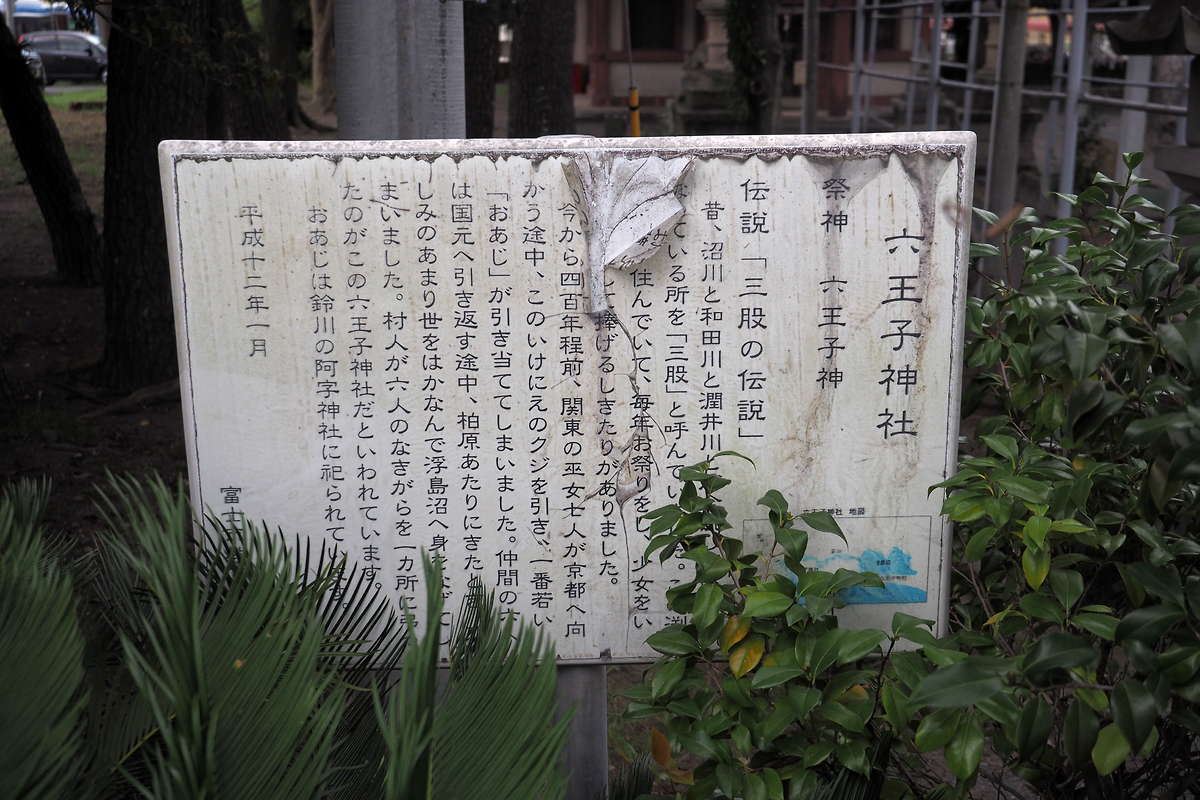 六王子神社
祭神 六王子神
伝説「三股の伝説」
昔、沼川と和田川と潤井川
なっている所を「三股」と呼んで
住んでいて、毎年お祭りをし 少女をい
して捧げるしきたりがありました。
今から四百年程前、関東の巫女七人が京都へ向
かう途中、このいけにえのクジを引き、一番若い
「おあじ」が引き当ててしまいました。仲間の六
は国元へ引き返す途中、柏原あたりにきたと
しみのあまり世をはかなんで浮島沼へ身を
まいました。村人が六人のなきがらを一カ所に
たのがこの六王子神社だといわれています。
おあじは鈴川の阿字神社に祀られてい
平成十二年一月
富士
神社 地図